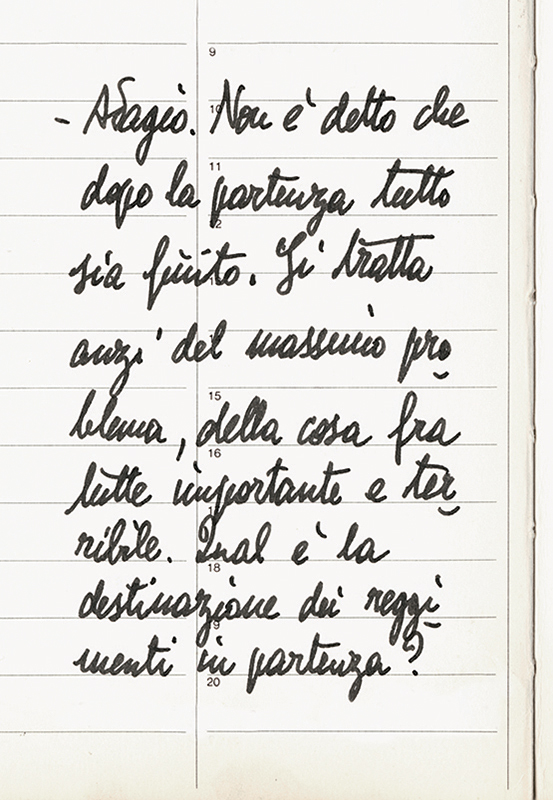 9
10
- Adagio. Non è detto che
11
dopo la partenza tutto
12
sia finito. Si tratta
anzi del massimo pro
blema, della cosa fra
15
16
tutte importante e ter
ribile. Qual è la
18
destinazione dei reggi
19
menti in partenza?
20